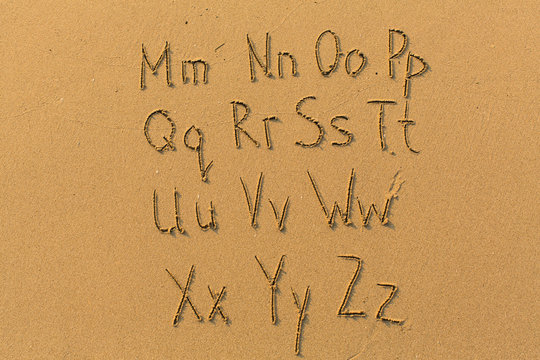 Mm Nn Oo Pp
Qq Rr Ss Tt
Uu Vv Ww
Xx Yy Zz